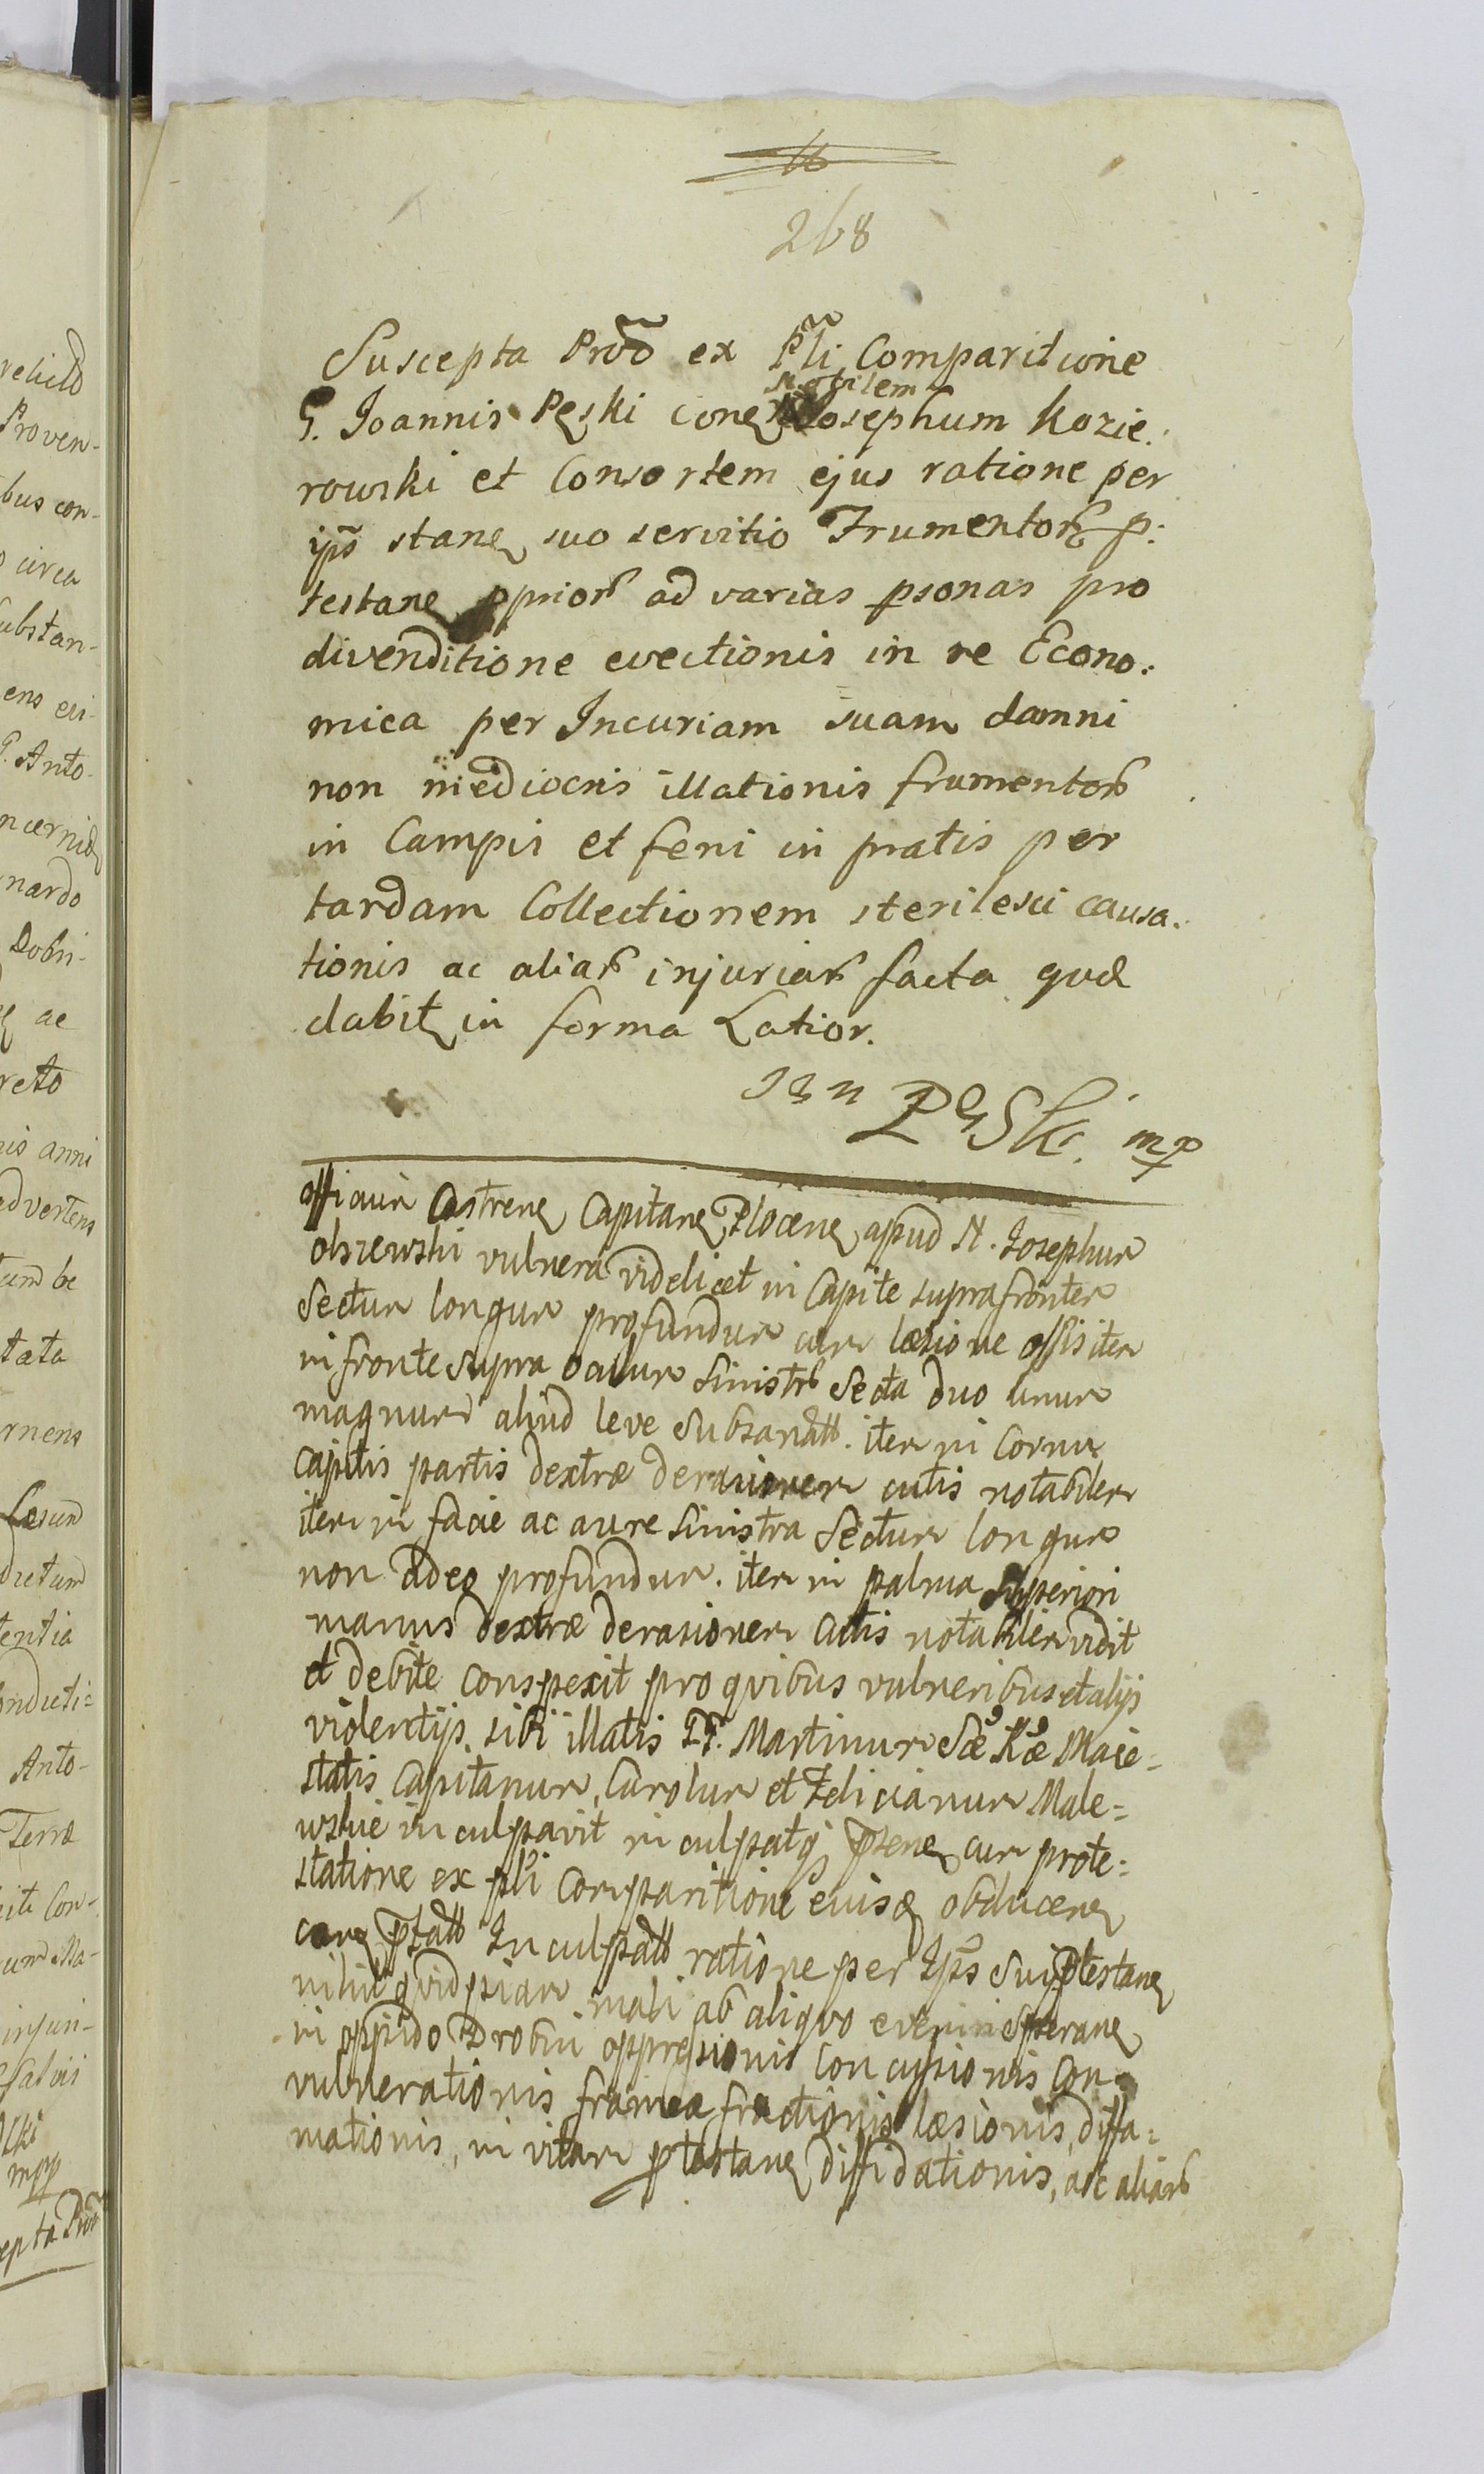 16
268
Suscepta Prõõ ex Pĩi Comparitione
G. Joannis Pęski cone Nobilem Josephum Kozie:
rowski et Consortem ejus ratione per
ips̃ stane suo servitio Frumentor p:
testane pprior ad varias psonas pro
divenditione evectionis in re Econo:
mica per Incuriam suam damni
non mediocris illationis frumentor
in Campis et feni in pratis per
tardam Collectionem sterilesci causa:
tionis ac aliar injuriar facta qvæ
dabit in forma Latior.
Jan Pęski mp
Officium Castrene Capitane Plocene apud N. Josephum
Olszewski vulnera videlicet in Capite supra frontem
Sectum longum profundum cum læsione ossis item
in fronte supra oculum sinistr Secta duo unum
magnum aliud leve Subsanatt. item in Cornu
Capitis partis dextræ derasionem cutis notabilem
item in facie ac aure sinistra Sectum longum
non adeo profundum. item in palma Superiori
manus dextræ derasionem cutis notabilem vidit
et debite conspexit pro qvibus vulneribus et alijs
violentijs sibi illatis PP. Martinum Sæ Ræ Maie=
statis Capitanum, Carolum et Felicianum Male=
wskie inculpavit inculpatq psene cum prote=
statione ex pli Comparitione eiusd obducene
cone pfatt Inculpatt ratione per Ips̃ Sui ptestane
nihil qvidpiam mali ab aliqvo eveniri sperane
in oppido Drobin oppresionis Concusionis Con=
vulnerationis frameæ fractionis læsionis, diffa=
mationis, in vitam ptestane diffidationis, ac aliar